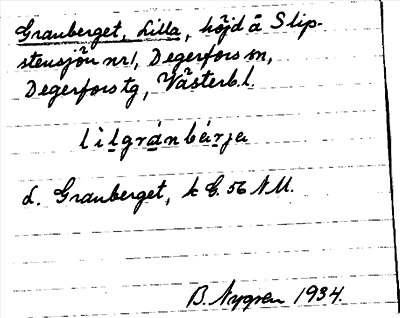 Granberget, Lilla, höjd å Slip-
stensjön nr 1, Degerfors sn,
Degerfors tg, Västerb.l.
lìlgránbárja
d. Granberget, k G. 56 NU.
B. Nygren 1934.